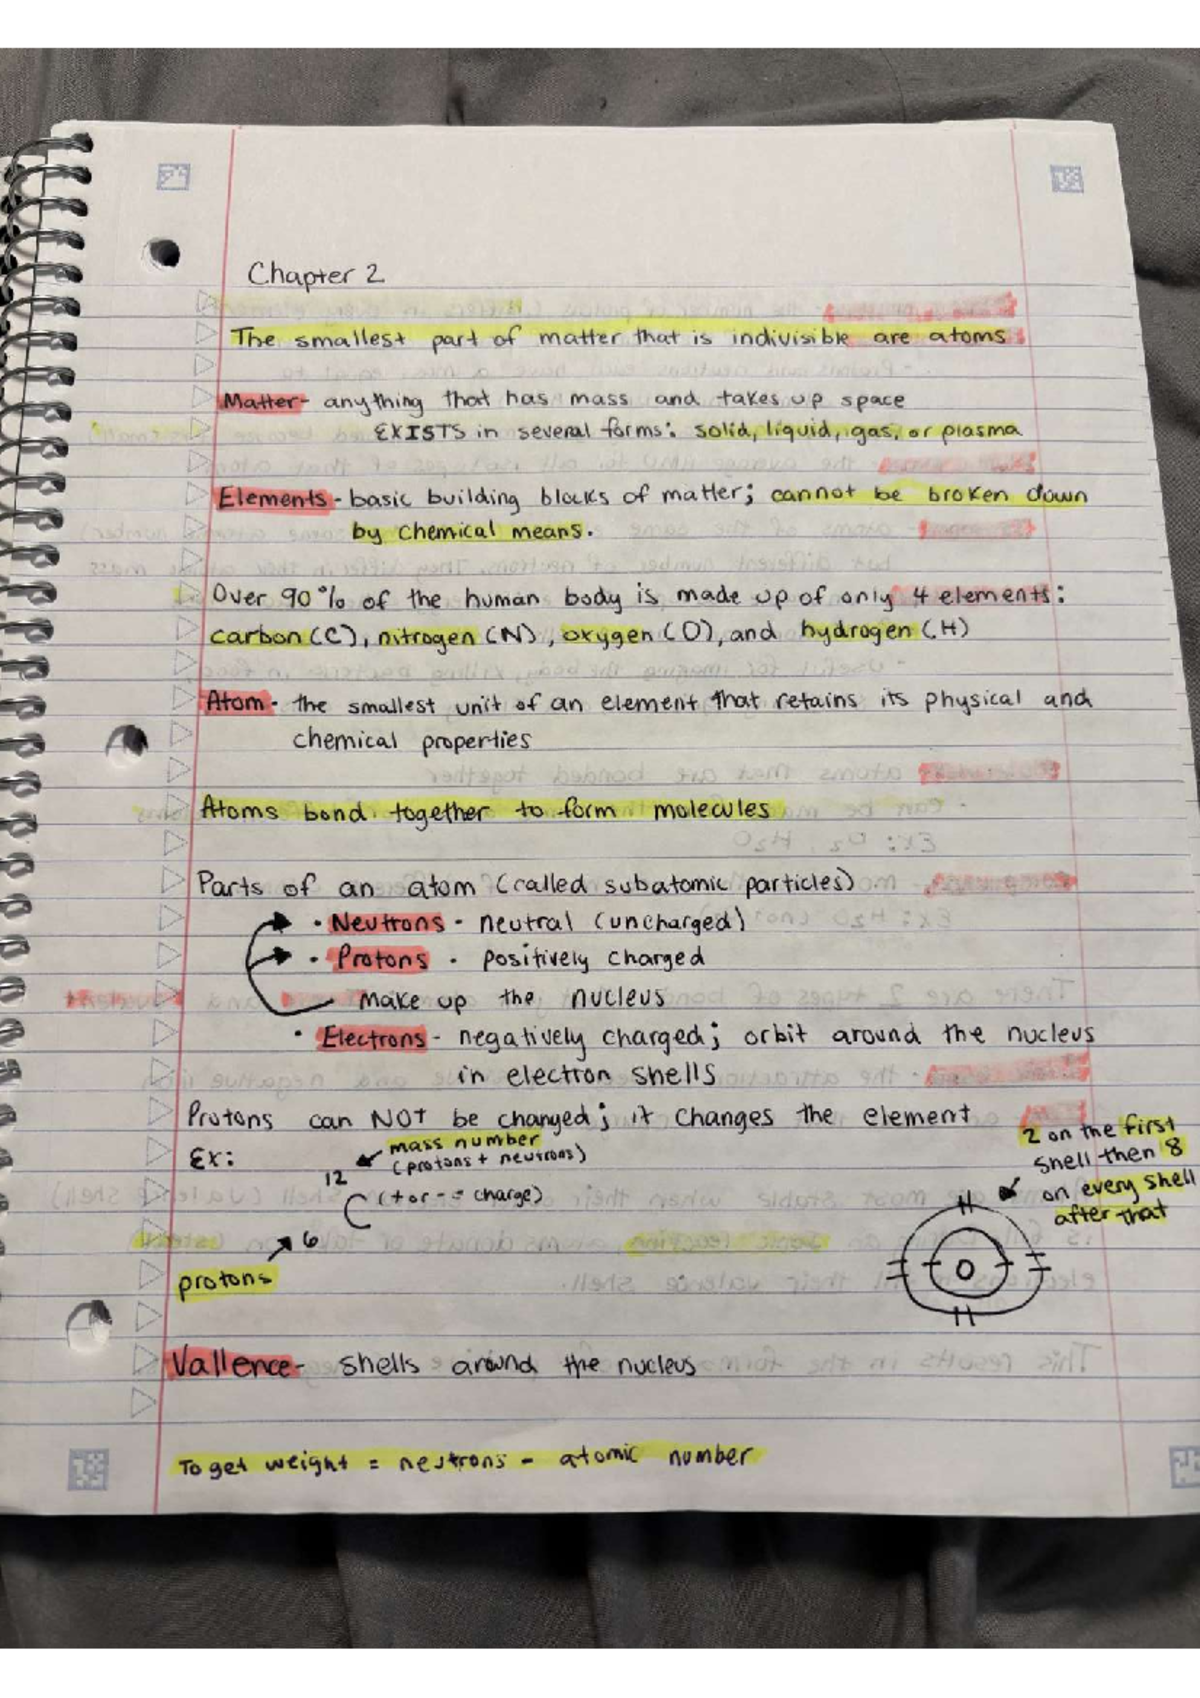 Chapter 2
The smallest part of matter that is indivisible are atoms
Matter- anything that has mass and takes up space
EXISTS in several forms: solid, liquid, gas, or plasma
Elements - basic building blocks of matter; cannot be broken down
by chemical means.
Over 90% of the human body is made up of only 4 elements:
carbon (C), nitrogen (N), oxygen (O), and hydrogen (H)
Atom - the smallest unit of an element that retains its physical and
chemical properties
Atoms bond together to form molecules
Parts of an atom (called subatomic particles)
• Neutrons - neutral (uncharged)
• Protons - positively charged
make up the nucleus
• Electrons - negatively charged; orbit around the nucleus
in electron shells
Protons can NOT be changed; it changes the element
Ex:
mass number
(protons + neutrons)
12
(+ or - = charge)
C
6
protons
2 on the first
shell then 8
on every shell
after that
Vallence- shells around the nucleus
To get weight = neutrons - atomic number